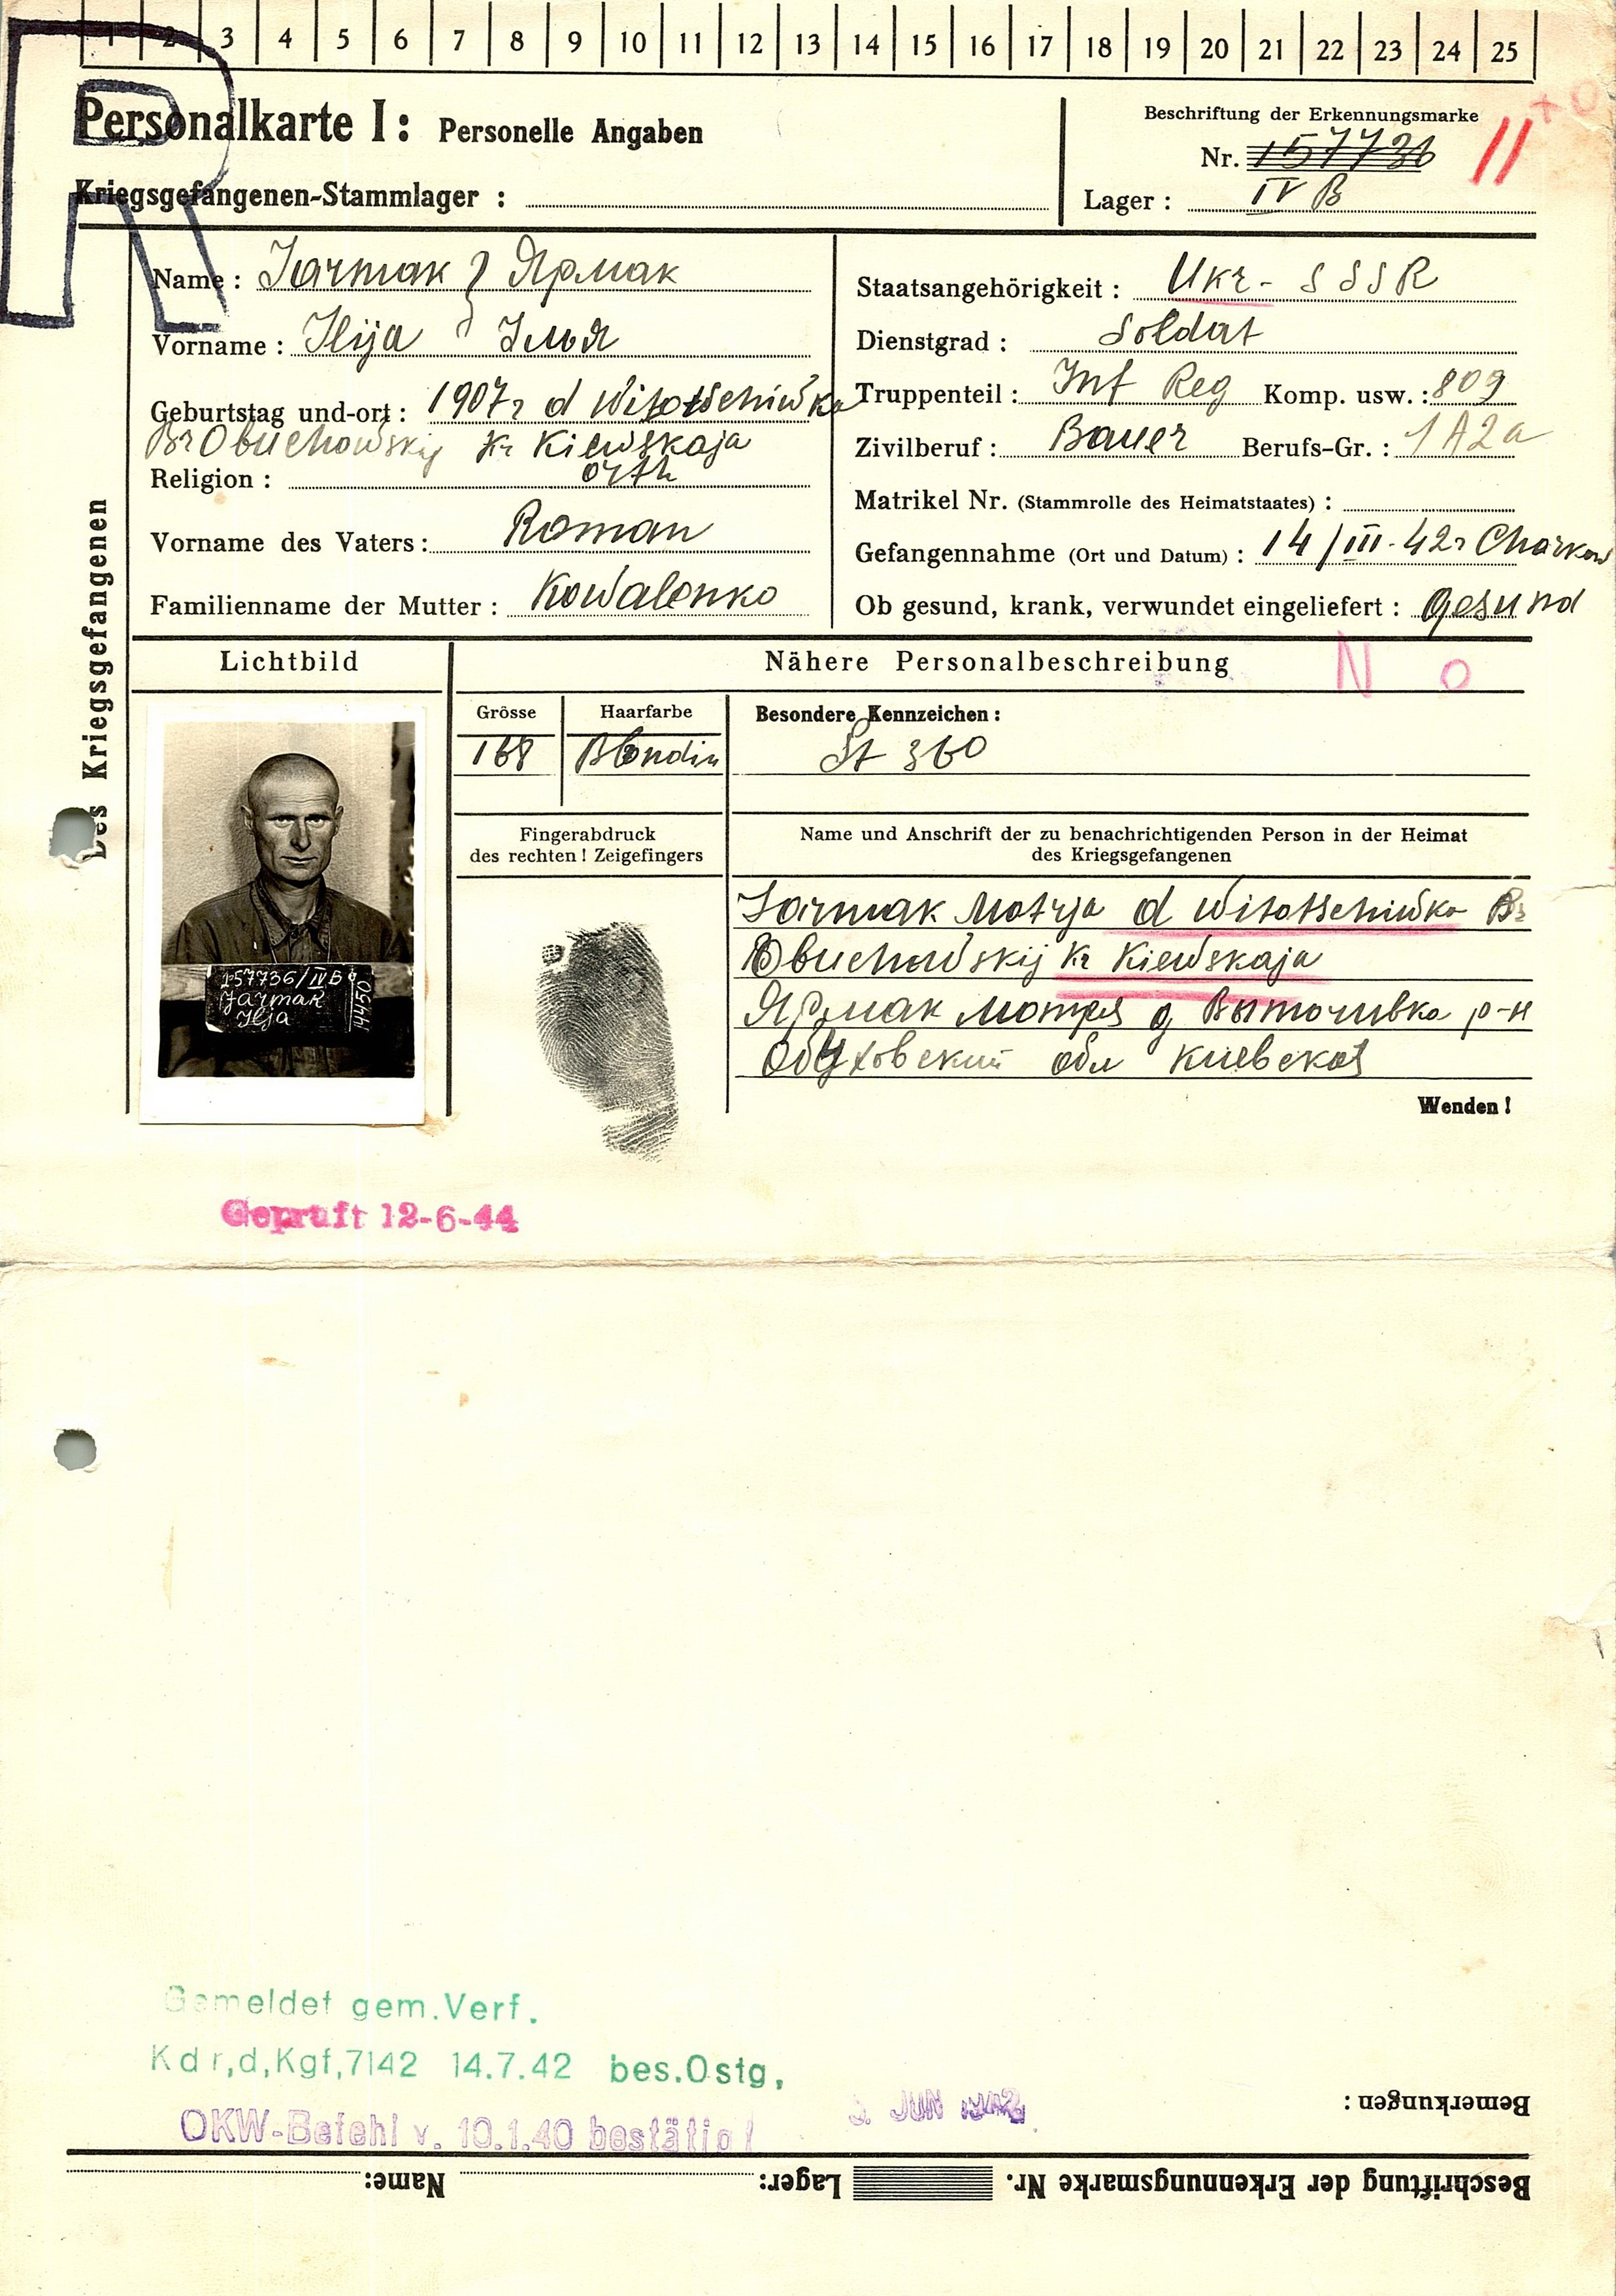 1 2 3 4 5 6 7 8 9 10 11 12 13 14 15 16 17 18 19 20 21 22 23 24 25
R
Personalkarte I: Personelle Angaben
Kriegsgefangenen-Stammlager :
Beschriftung der Erkennungsmarke
Nr. 157736
II
Lager : IV B
Des Kriegsgefangenen
Name : Jarmak Ярмак
Vorname : Ilija Илья
Geburtstag und-ort : 1907 г d Witotscheniwka
Br Obuchowskij Kr Kiewskaja
Religion : orth
Vorname des Vaters : Roman
Familienname der Mutter : Kowalenko
Staatsangehörigkeit : Ukr- SSSR
Dienstgrad : Soldat
Truppenteil : Inf Reg Komp. usw. : 809
Zivilberuf : Bauer Berufs-Gr. : 1 A2a
Matrikel Nr. (Stammrolle des Heimatstaates) :
Gefangennahme (Ort und Datum) : 14/III-42г Charkow
Ob gesund, krank, verwundet eingeliefert : Gesund
Lichtbild
Nähere Personalbeschreibung
N o
Grösse
168
Haarfarbe
Blondin
Besondere Kennzeichen :
St 360
Fingerabdruck
des rechten ! Zeigefingers
Name und Anschrift der zu benachrichtigenden Person in der Heimat
des Kriegsgefangenen
Jarmak Motrja d Witotscheniwka Br
Obuchowskij Kr Kiewskaja
Ярмак Мотря д р-н
Обуховский обл Киевская
157736/IVB
Jarmak
Ilja
14450
Wenden !
Geprüft 12-6-44
Gemeldet gem.Verf.
Kdr,d,Kgf,7142 14.7.42 bes.Ostg,
OKW-Befehl v. 10.1.40 bestätigt
JUN 1942
Bemerkungen :
Beschriftung der Erkennungsmarke Nr. Lager: Name: